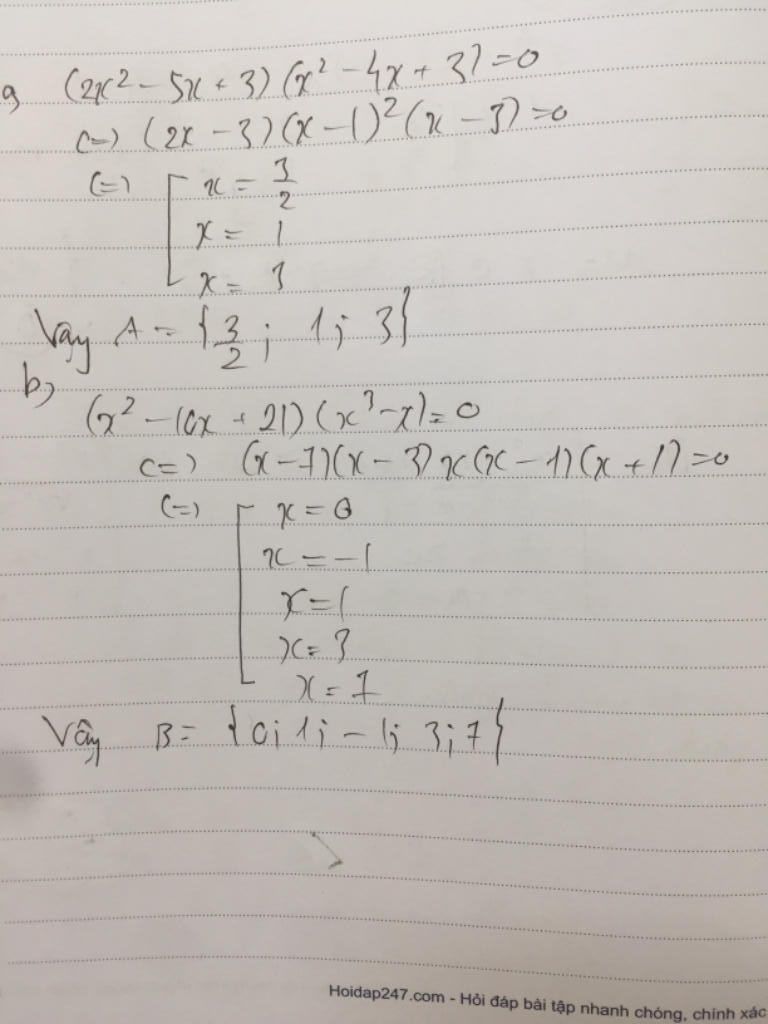 a) (2x² - 5x + 3)(x² - 4x + 3) = 0
<=> (2x - 3)(x - 1)²(x - 3) = 0
<=> [ x = 3/2
x = 1
x = 3
Vậy A = {3/2; 1; 3}
b)
(x² - 10x + 21)(x³ - x) = 0
<=> (x - 7)(x - 3)x(x - 1)(x + 1) = 0
<=> [ x = 0
x = -1
x = 1
x = 3
x = 7
Vậy B = {0; 1; -1; 3; 7}
Hoidap247.com - Hỏi đáp bài tập nhanh chóng, chính xác